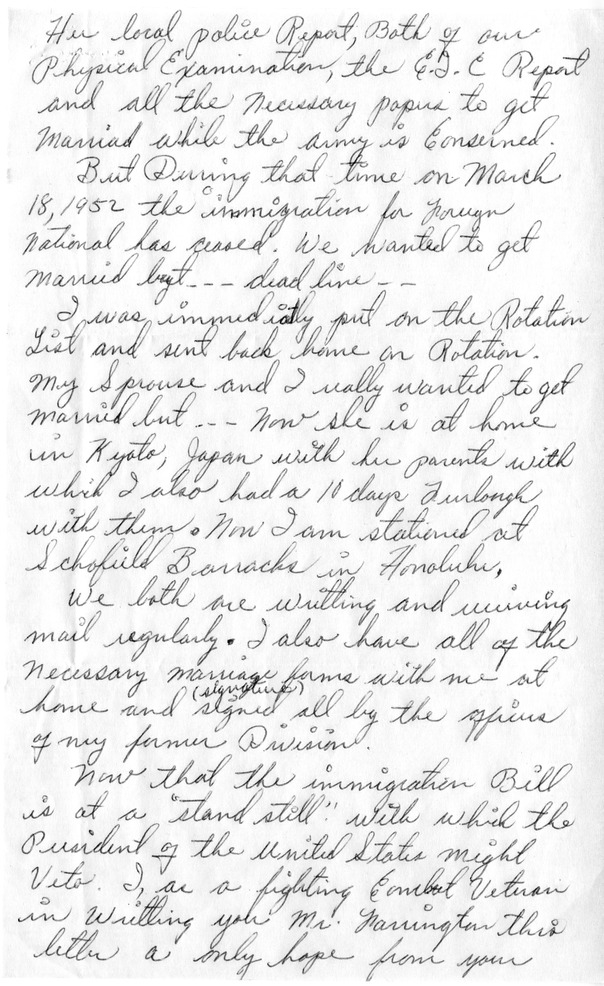 Her local police Report, Both of our
Physical Examination, the E.I.C Report
and all the necessary papers to get
Marriad while the army is Conserned.
But During that time on March
18, 1952 the immigration for Foreign
National has ceased. We wanted to get
married but --- dead line --
I was immediatly put on the Rotation
List and sent back home on Rotation.
My Sprouse and I really wanted to get
married but --- Now she is at home
in Kyoto, Japan with her parents with
which I also had a 10 days Furlough
with them. Now I am stationed at
Schofield Barracks in Honolulu,
We both are writting and reciving
mail regularly. I also have all of the
Necessary marriage forms with me at
(signature)
home and signed all by the officers
of my former Division.
Now that the immigration Bill
is at a "stand still" with which the
President of the United States might
Veto. I, as a fighting Combat Veteran
in Writting you Mr. Farrington this
letter a only hope from your